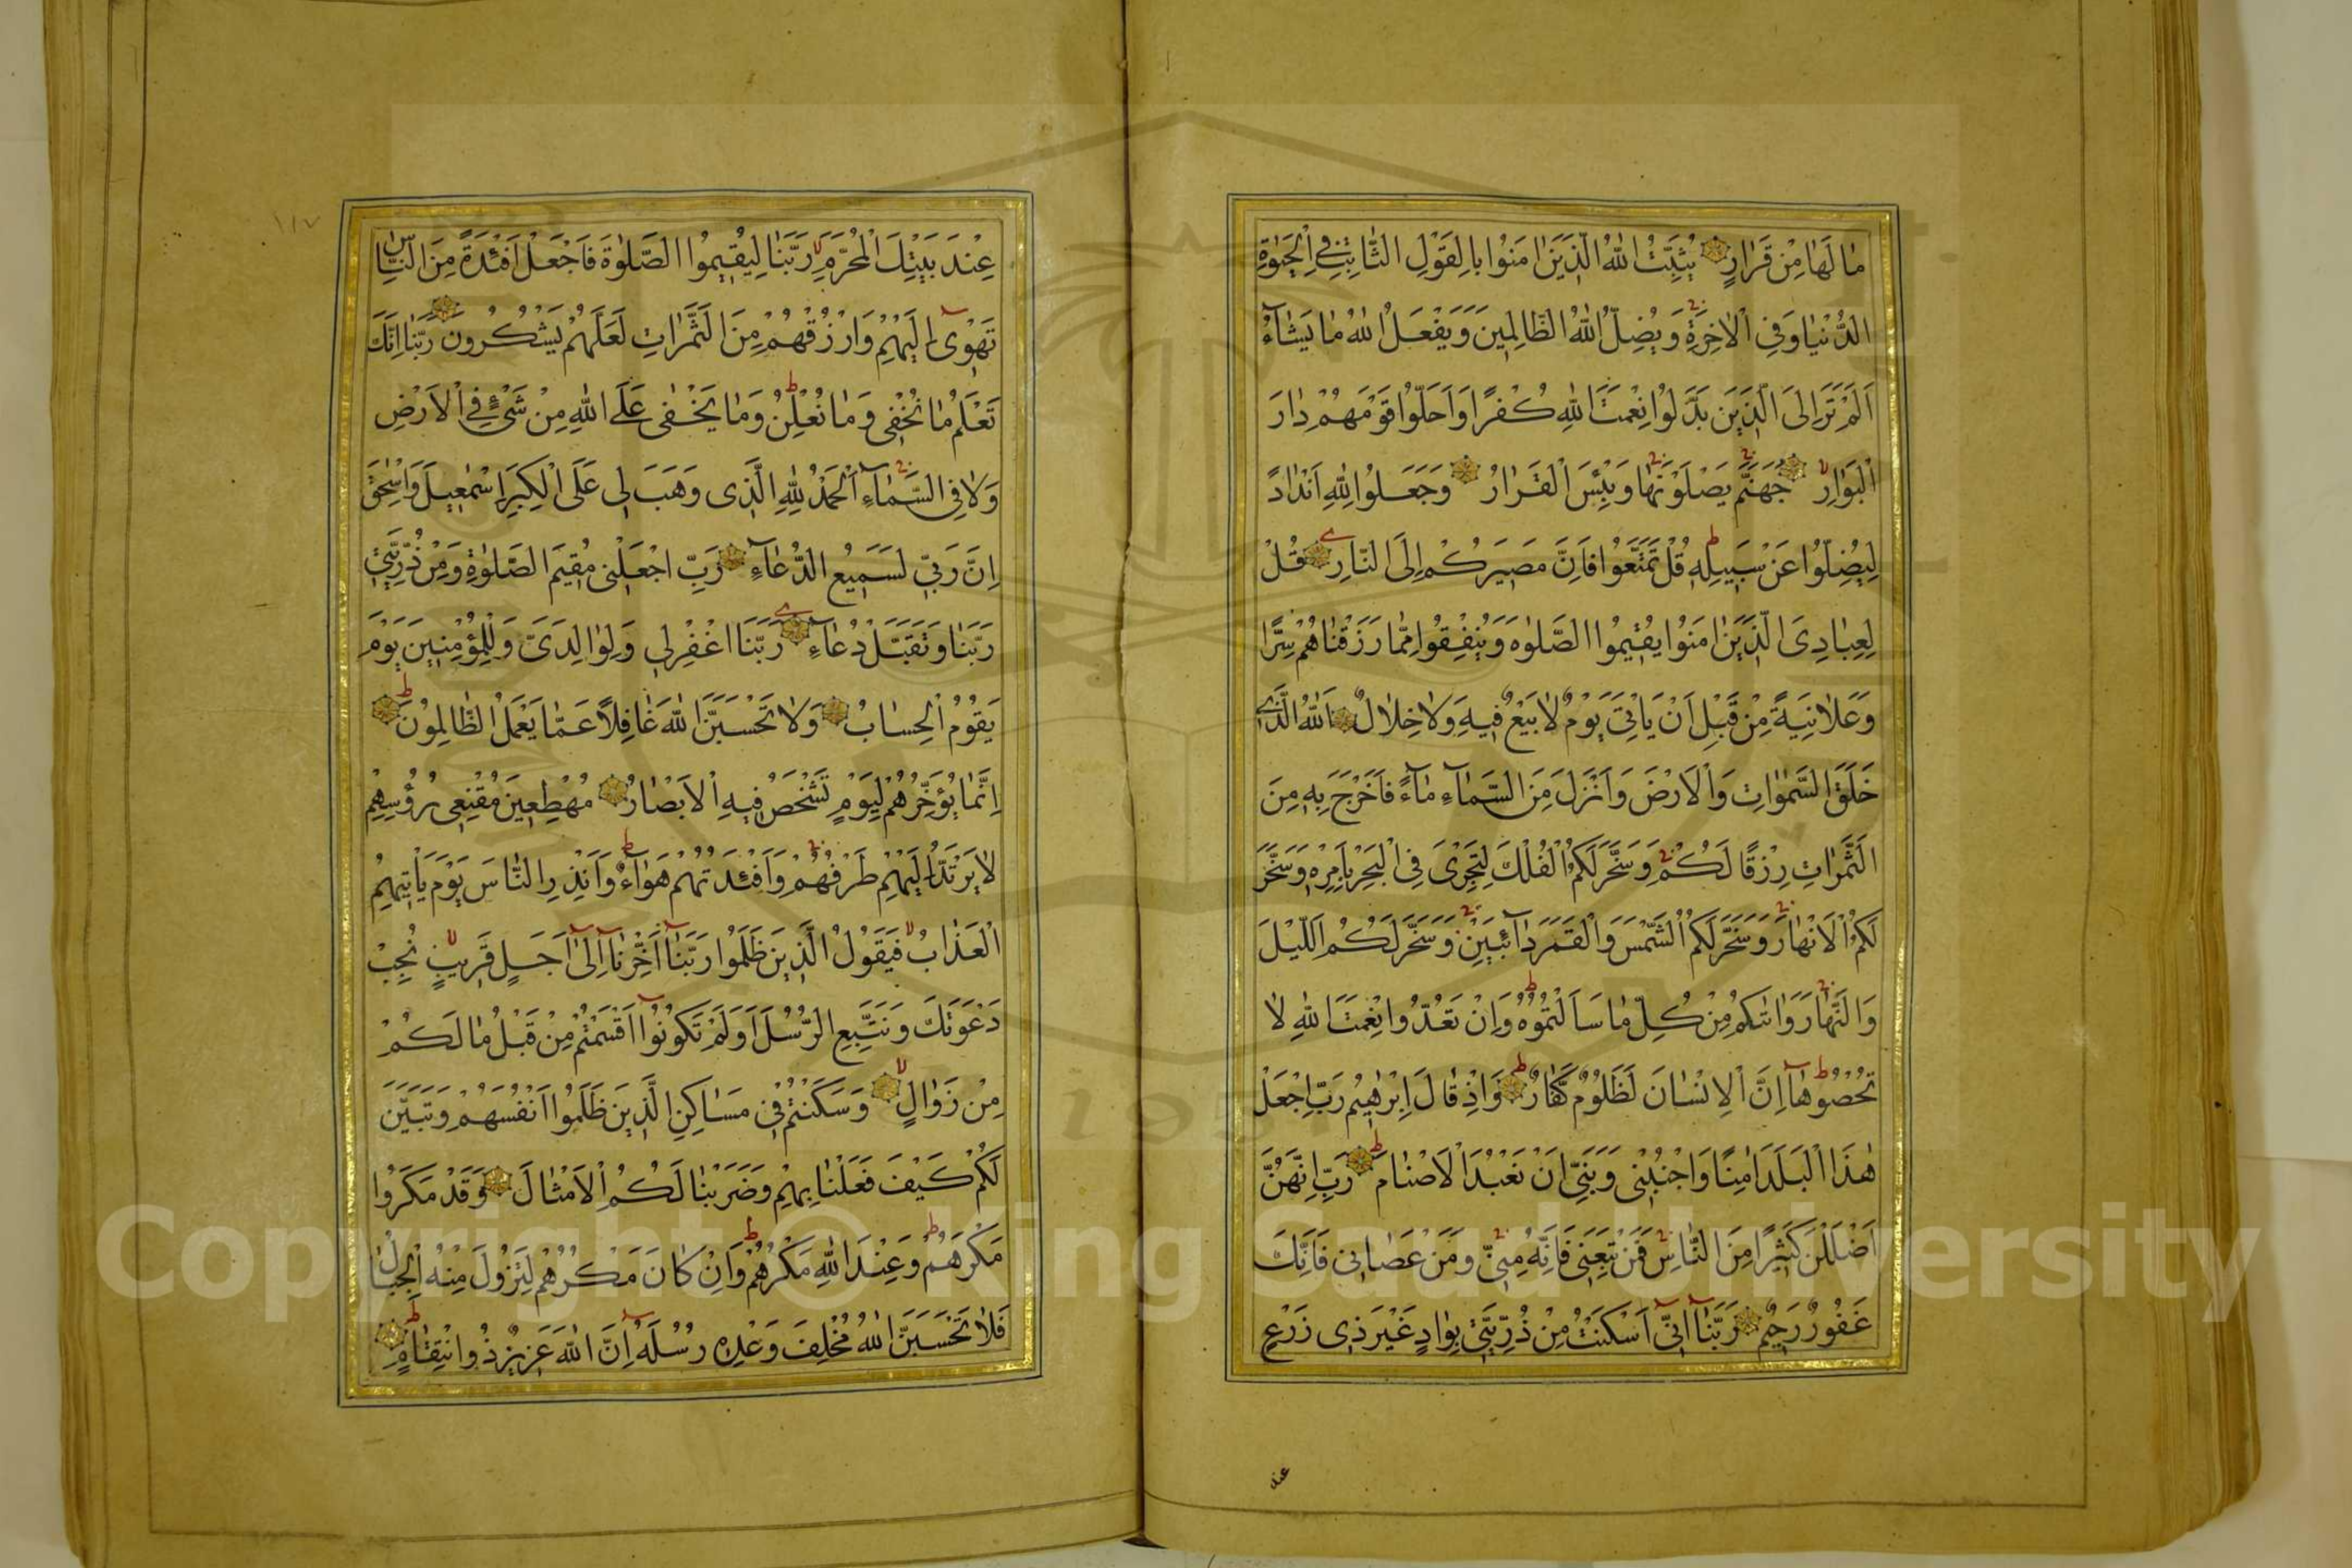 مَا لَهَا مِنْ قَرَارٍ يُثَبِّتُ اللّٰهُ الَّذِينَ اٰمَنُوا بِالْقَوْلِ الثَّابِتِ فِي الْحَيٰوةِ
الدُّنْيَا وَفِي الْاٰخِرَةِ وَيُضِلُّ اللّٰهُ الظَّالِمِينَ وَيَفْعَلُ اللّٰهُ مَا يَشَاۤءُ
اَلَمْ تَرَ اِلَى الَّذِينَ بَدَّلُوا نِعْمَتَ اللّٰهِ كُفْرًا وَاَحَلُّوا قَوْمَهُمْ دَارَ
الْبَوَارِ جَهَنَّمَ يَصْلَوْنَهَا وَبِئْسَ الْقَرَارُ وَجَعَلُوا لِلّٰهِ اَنْدَادًا
لِيُضِلُّوا عَنْ سَبِيلِهِ قُلْ تَمَتَّعُوا فَاِنَّ مَصِيرَكُمْ اِلَى النَّارِ قُلْ
لِعِبَادِيَ الَّذِينَ اٰمَنُوا يُقِيمُوا الصَّلٰوةَ وَيُنْفِقُوا مِمَّا رَزَقْنَاهُمْ سِرًّا
وَعَلَانِيَةً مِنْ قَبْلِ اَنْ يَاْتِيَ يَوْمٌ لَا بَيْعٌ فِيهِ وَلَا خِلَالٌ اَللّٰهُ الَّذِي
خَلَقَ السَّمٰوَاتِ وَالْاَرْضَ وَاَنْزَلَ مِنَ السَّمَاۤءِ مَاۤءً فَاَخْرَجَ بِهِ مِنَ
الثَّمَرَاتِ رِزْقًا لَكُمْ وَسَخَّرَ لَكُمُ الْفُلْكَ لِتَجْرِيَ فِي الْبَحْرِ بِاَمْرِهِ وَسَخَّرَ
لَكُمُ الْاَنْهَارَ وَسَخَّرَ لَكُمُ الشَّمْسَ وَالْقَمَرَ دَاۤئِبَيْنِ وَسَخَّرَ لَكُمُ اللَّيْلَ
وَالنَّهَارَ وَاٰتٰيكُمْ مِنْ كُلِّ مَا سَاَلْتُمُوهُ وَاِنْ تَعُدُّوا نِعْمَتَ اللّٰهِ لَا
تُحْصُوهَاۤ اِنَّ الْاِنْسَانَ لَظَلُومٌ كَفَّارٌ وَاِذْ قَالَ اِبْرٰهِيمُ رَبِّ اجْعَلْ
هٰذَا الْبَلَدَ اٰمِنًا وَاجْنُبْنِي وَبَنِيَّ اَنْ نَعْبُدَ الْاَصْنَامَ رَبِّ اِنَّهُنَّ
اَضْلَلْنَ كَثِيرًا مِنَ النَّاسِ فَمَنْ تَبِعَنِي فَاِنَّهُ مِنِّي وَمَنْ عَصَانِي فَاِنَّكَ
غَفُورٌ رَحِيمٌ رَبَّنَاۤ اِنِّيۤ اَسْكَنْتُ مِنْ ذُرِّيَّتِي بِوَادٍ غَيْرِ ذِي زَرْعٍ
عند
١١٧
عِنْدَ بَيْتِكَ الْمُحَرَّمِ رَبَّنَا لِيُقِيمُوا الصَّلٰوةَ فَاجْعَلْ اَفْئِدَةً مِنَ النَّاسِ
تَهْوِيۤ اِلَيْهِمْ وَارْزُقْهُمْ مِنَ الثَّمَرَاتِ لَعَلَّهُمْ يَشْكُرُونَ رَبَّنَا اِنَّكَ
تَعْلَمُ مَا نُخْفِي وَمَا نُعْلِنُ وَمَا يَخْفٰى عَلَى اللّٰهِ مِنْ شَيْءٍ فِي الْاَرْضِ
وَلَا فِي السَّمَاۤءِ اَلْحَمْدُ لِلّٰهِ الَّذِي وَهَبَ لِي عَلَى الْكِبَرِ اِسْمٰعِيلَ وَاِسْحٰقَ
اِنَّ رَبِّي لَسَمِيعُ الدُّعَاۤءِ رَبِّ اجْعَلْنِي مُقِيمَ الصَّلٰوةِ وَمِنْ ذُرِّيَّتِي
رَبَّنَا وَتَقَبَّلْ دُعَاۤءِ رَبَّنَا اغْفِرْ لِي وَلِوَالِدَيَّ وَلِلْمُؤْمِنِينَ يَوْمَ
يَقُومُ الْحِسَابُ وَلَا تَحْسَبَنَّ اللّٰهَ غَافِلًا عَمَّا يَعْمَلُ الظَّالِمُونَ
اِنَّمَا يُؤَخِّرُهُمْ لِيَوْمٍ تَشْخَصُ فِيهِ الْاَبْصَارُ مُهْطِعِينَ مُقْنِعِي رُؤُسِهِمْ
لَا يَرْتَدُّ اِلَيْهِمْ طَرْفُهُمْ وَاَفْئِدَتُهُمْ هَوَاۤءٌ وَاَنْذِرِ النَّاسَ يَوْمَ يَاْتِيهِمُ
الْعَذَابُ فَيَقُولُ الَّذِينَ ظَلَمُوا رَبَّنَاۤ اَخِّرْنَاۤ اِلٰىۤ اَجَلٍ قَرِيبٍ نُجِبْ
دَعْوَتَكَ وَنَتَّبِعِ الرُّسُلَ اَوَلَمْ تَكُونُوۤا اَقْسَمْتُمْ مِنْ قَبْلُ مَا لَكُمْ
مِنْ زَوَالٍ وَسَكَنْتُمْ فِي مَسَاكِنِ الَّذِينَ ظَلَمُوا اَنْفُسَهُمْ وَتَبَيَّنَ
لَكُمْ كَيْفَ فَعَلْنَا بِهِمْ وَضَرَبْنَا لَكُمُ الْاَمْثَالَ وَقَدْ مَكَرُوا
مَكْرَهُمْ وَعِنْدَ اللّٰهِ مَكْرُهُمْ وَاِنْ كَانَ مَكْرُهُمْ لِتَزُولَ مِنْهُ الْجِبَالُ
فَلَا تَحْسَبَنَّ اللّٰهَ مُخْلِفَ وَعْدِهِ رُسُلَهُ اِنَّ اللّٰهَ عَزِيزٌ ذُو انْتِقَامٍ
Copyright © King Saud University